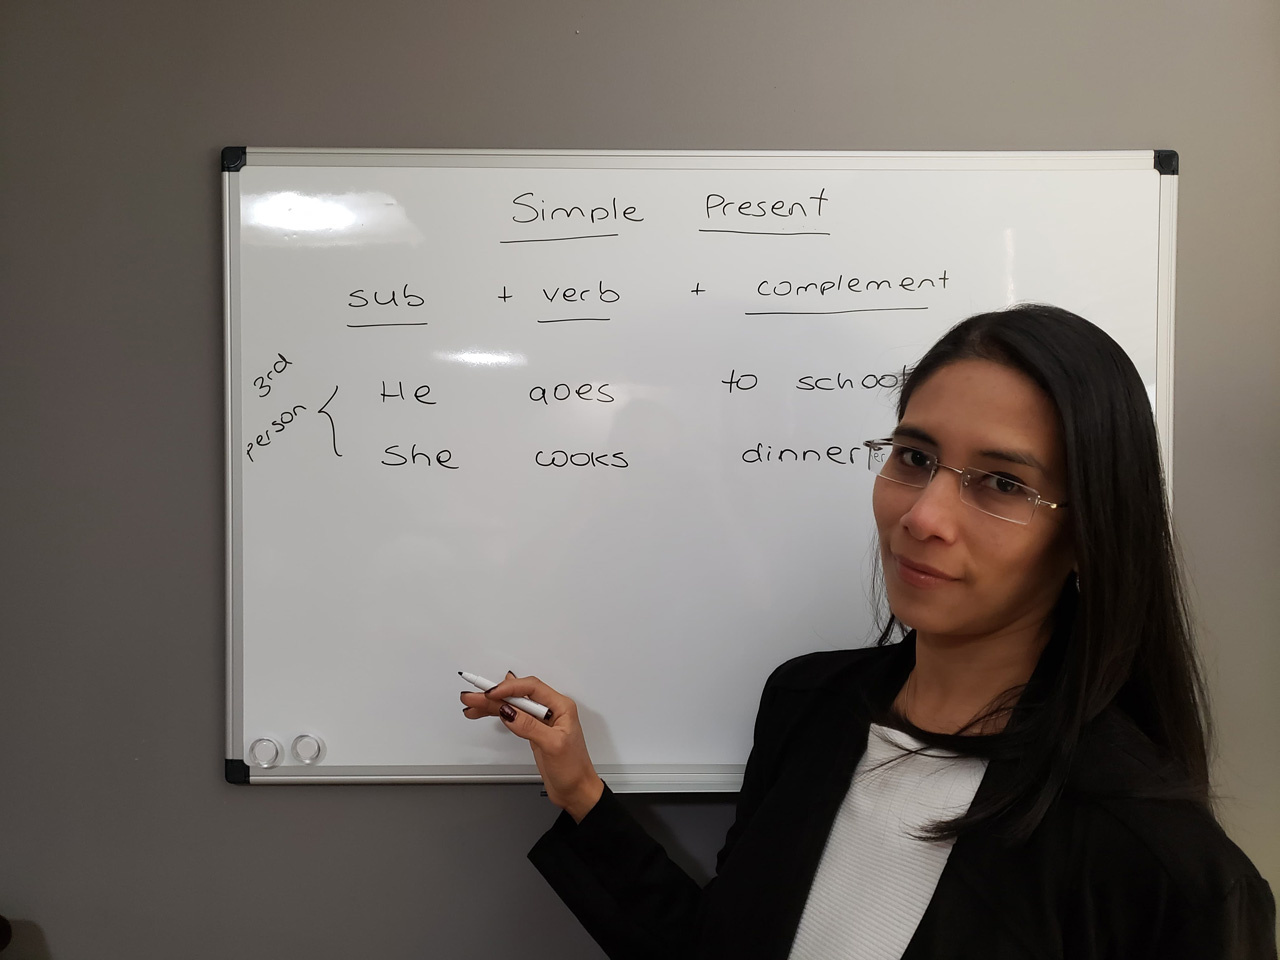 Simple Present
sub + verb + complement
3rd person { He goes to school
She cooks dinner